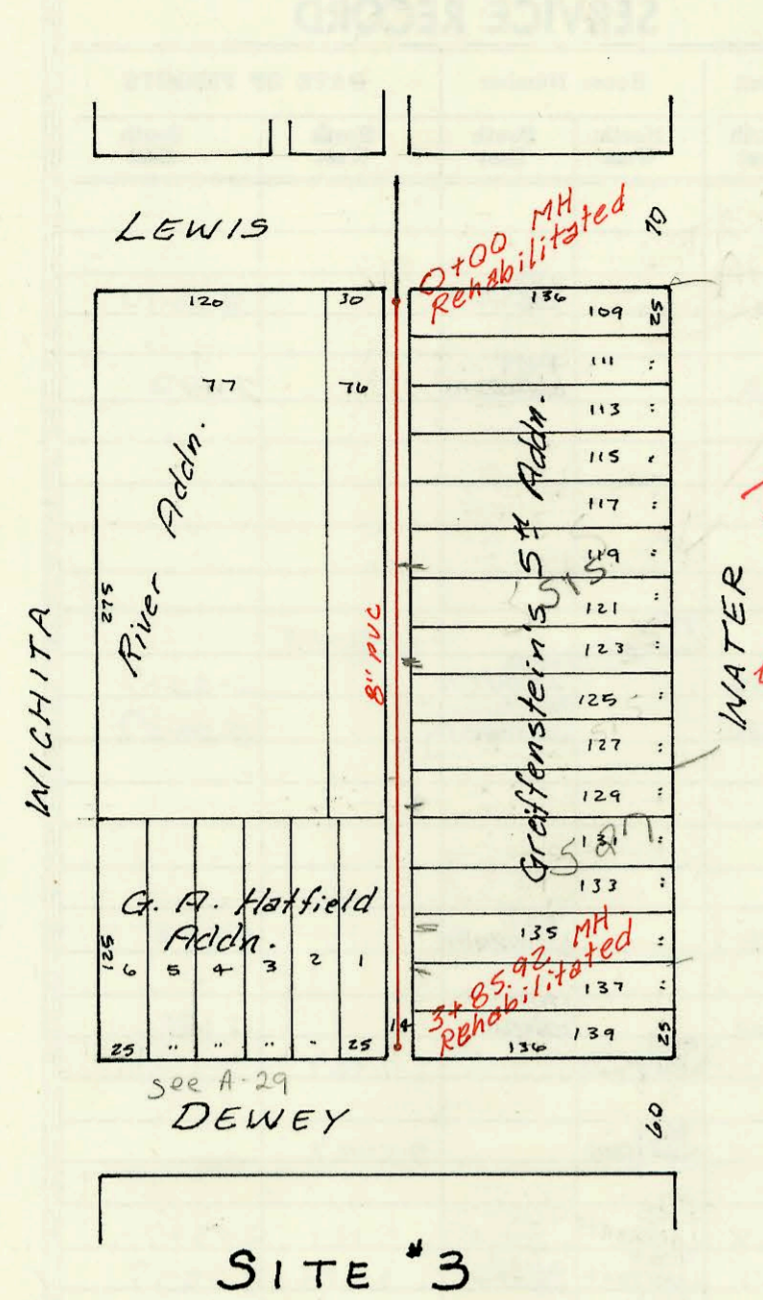 LEWIS
70
0+00 MH
Rehabilitated
120
30
136
109
25
77
76
111
"
113
"
115
"
117
"
119
"
515
121
"
123
"
125
"
127
"
129
"
131
"
133
"
135
"
137
"
139
25
136
River Addn.
275
8" PVC
Greiffenstein's 5th Addn.
WICHITA
WATER
587
G. A. Hatfield
Addn.
125
6
5
4
3
2
1
25
"
"
"
"
25
14
3+85.92 MH
Rehabilitated
See A-29
DEWEY
60
SITE #3